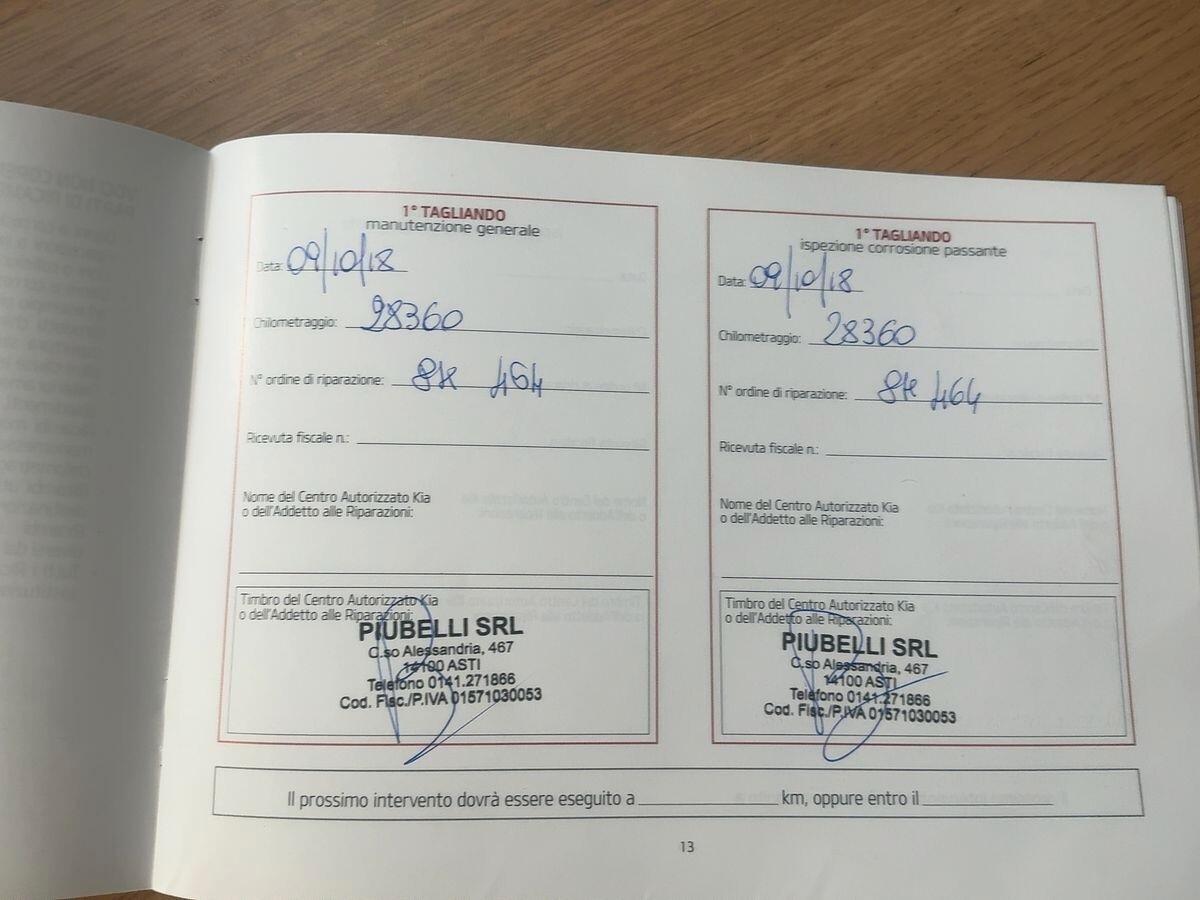 1° TAGLIANDO
manutenzione generale
Data: 09/10/18
Chilometraggio: 28360
N° ordine di riparazione: 464
Ricevuta fiscale n.:
Nome del Centro Autorizzato Kia
o dell'Addetto alle Riparazioni:
Timbro del Centro Autorizzato Kia
o dell'Addetto alle Riparazioni:
PIUBELLI SRL
C.so Alessandria, 467
14100 ASTI
Telefono 0141.271866
Cod. Fisc./P.IVA 01571030053
1° TAGLIANDO
ispezione corrosione passante
Data: 09/10/18
Chilometraggio: 28360
N° ordine di riparazione: 464
Ricevuta fiscale n.:
Nome del Centro Autorizzato Kia
o dell'Addetto alle Riparazioni:
Timbro del Centro Autorizzato Kia
o dell'Addetto alle Riparazioni:
PIUBELLI SRL
C.so Alessandria, 467
14100 ASTI
Telefono 0141.271866
Cod. Fisc./P.IVA 01571030053
Il prossimo intervento dovrà essere eseguito a km, oppure entro il
13